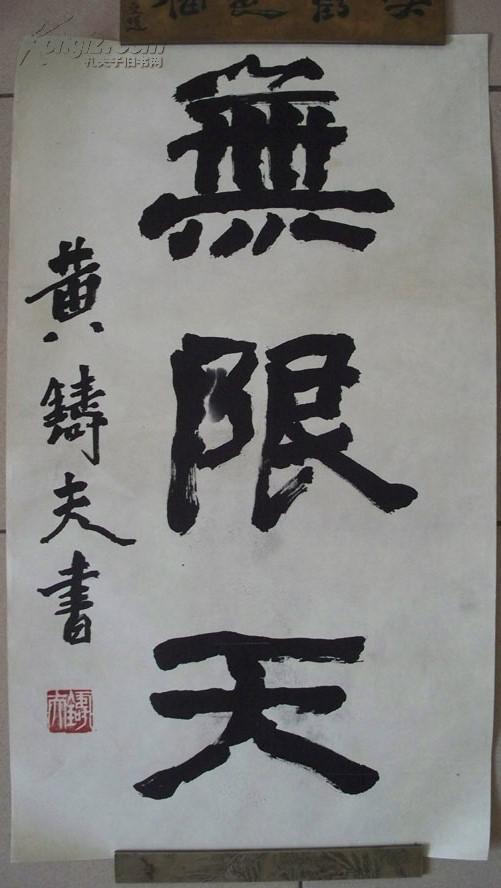 無限天
黄鑄夫書
kongfz.com
孔夫子旧书网